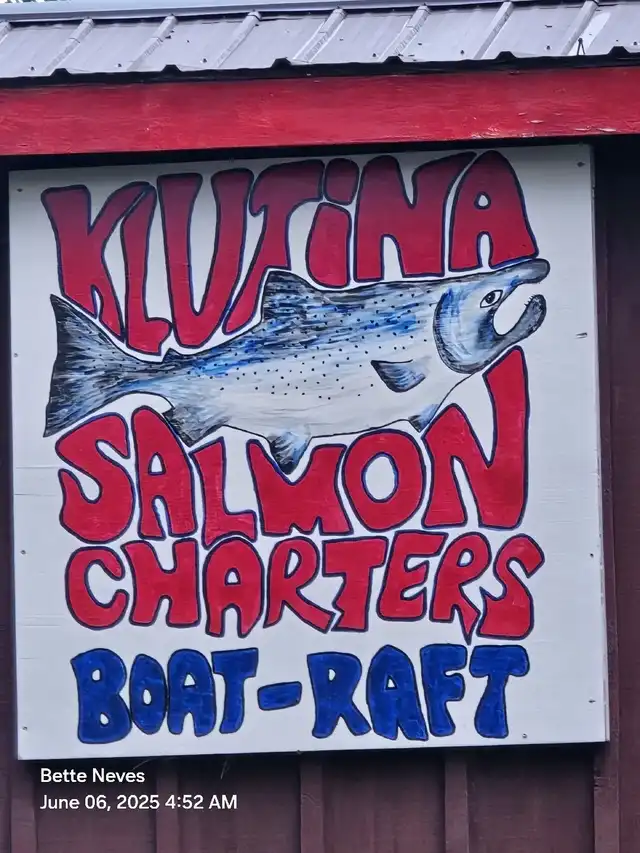 KLUTiNA
SALMON
CHARTERS
BOAT-RAFT
Bette Neves
June 06, 2025 4:52 AM